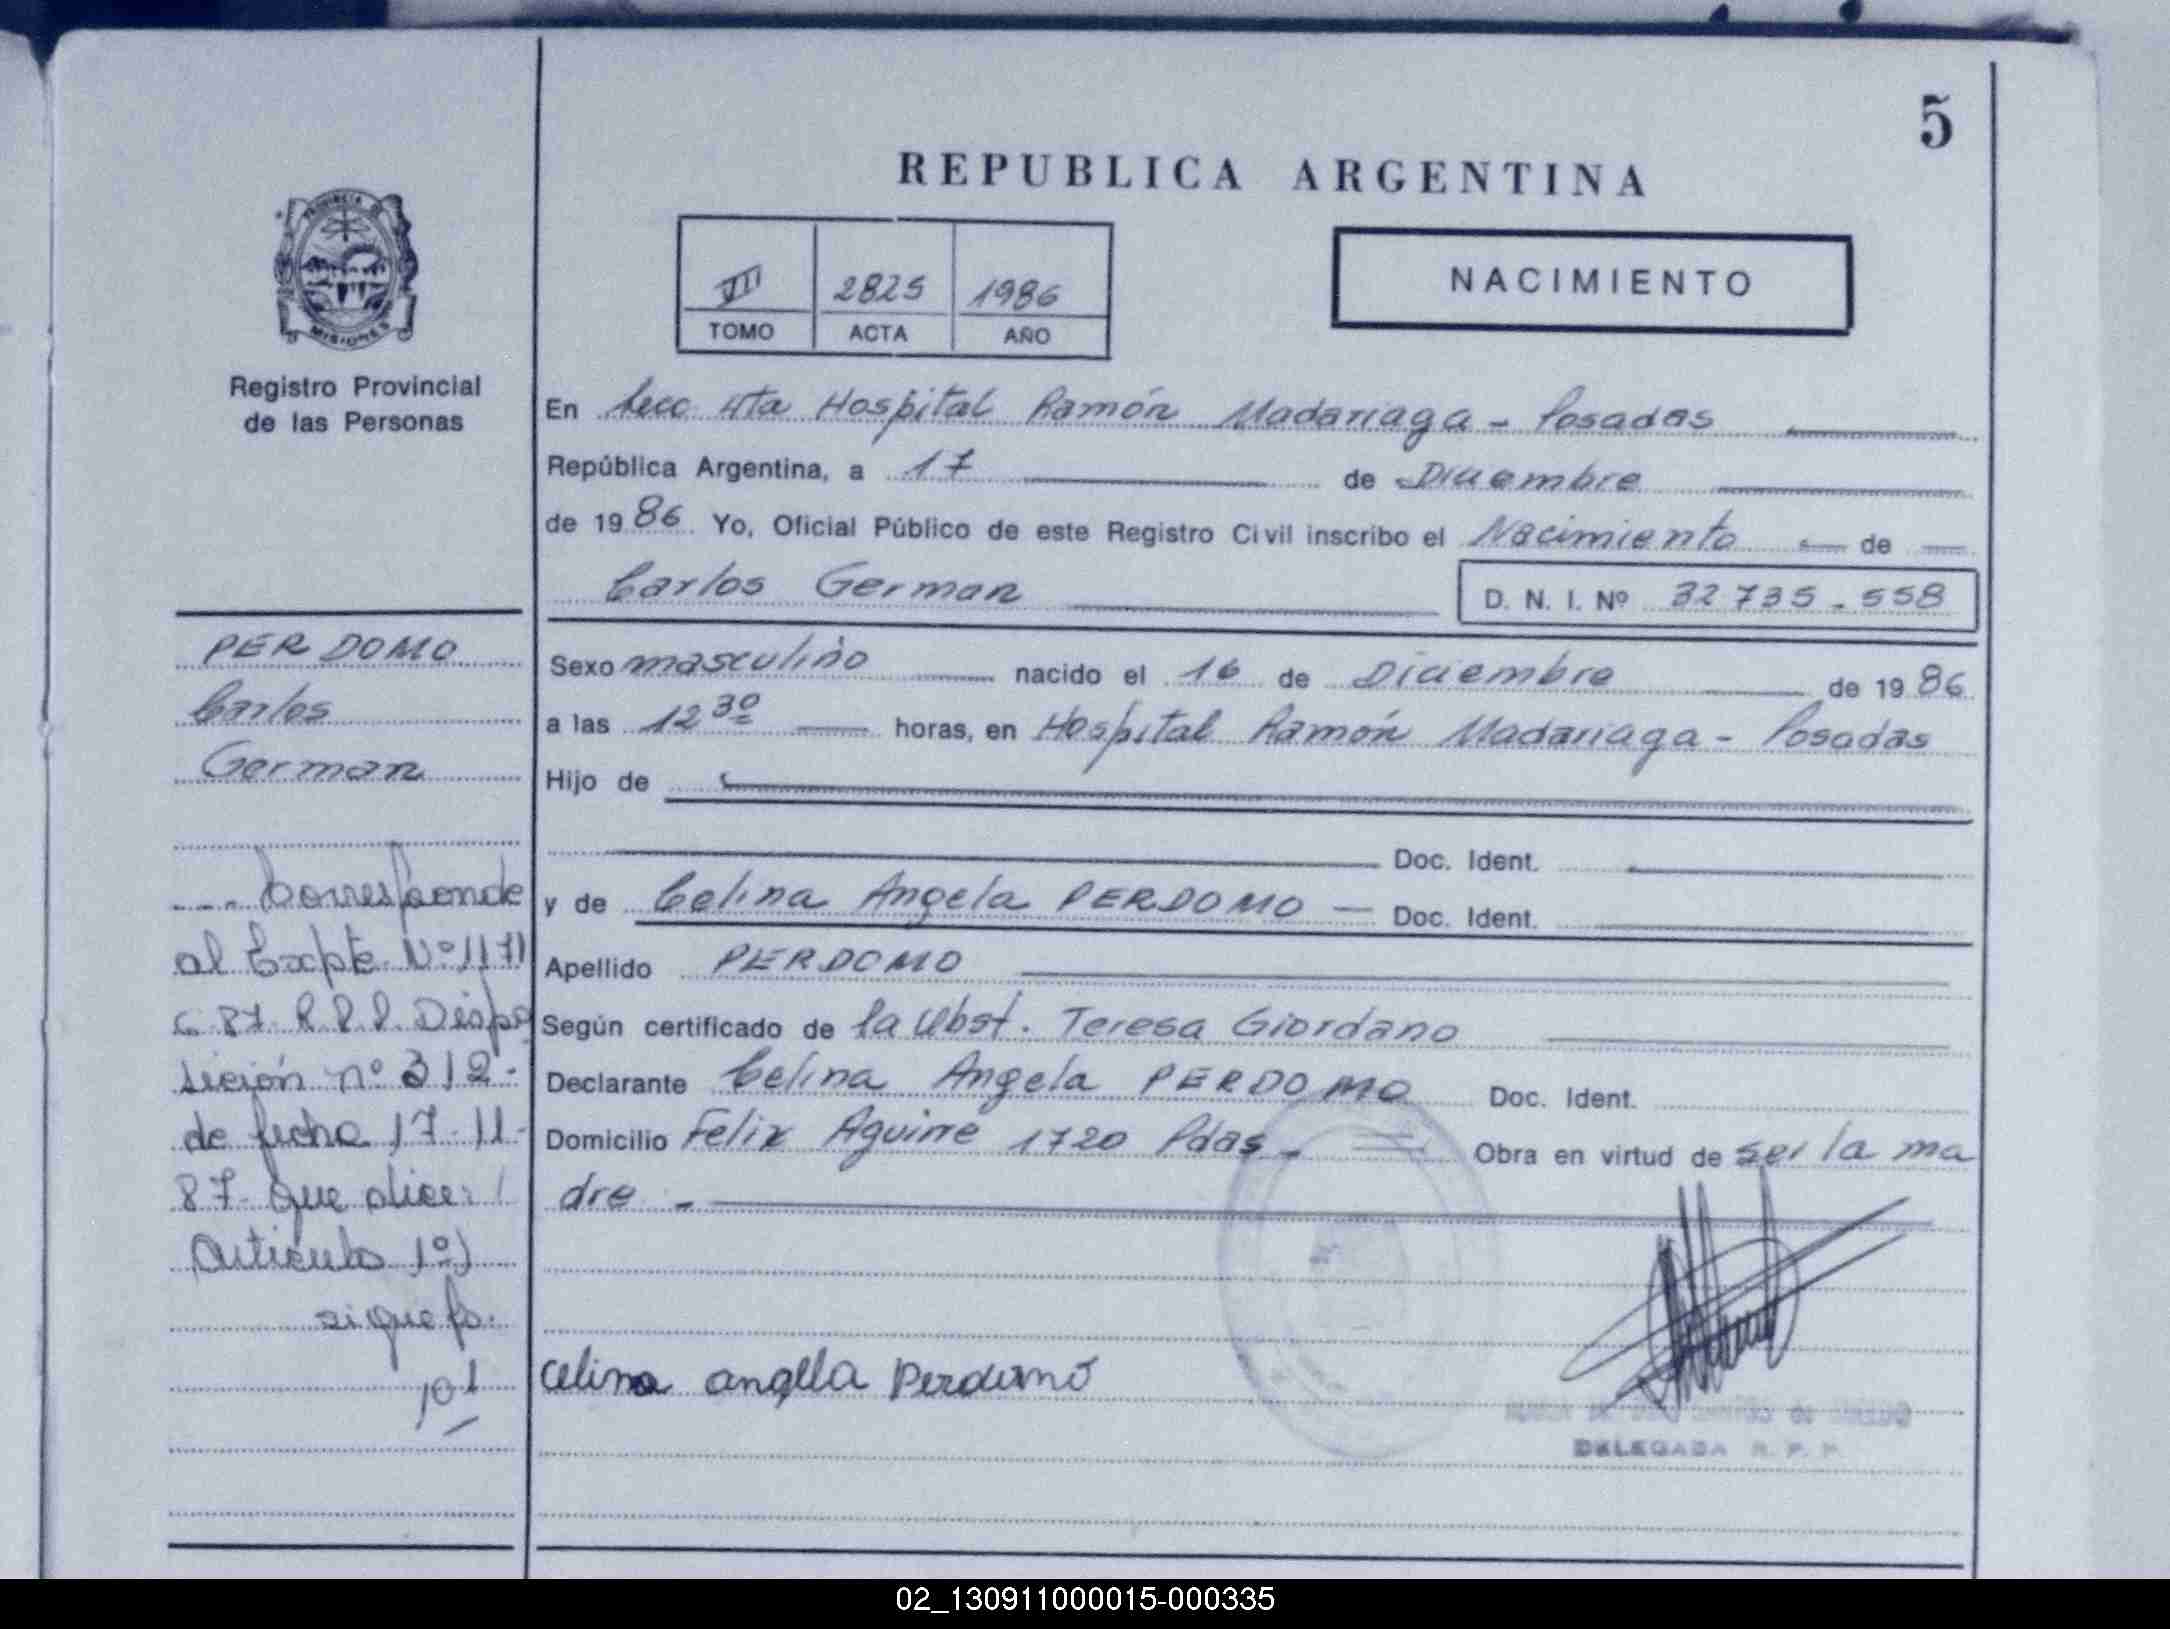 5
REPUBLICA ARGENTINA
VII 2825 1986
TOMO ACTA AÑO
NACIMIENTO
PROVINCIA DE
MISIONES
Registro Provincial
de las Personas
PERDOMO
Carlos
German
Corresponde
al Expte Nº 1171
c 87. R.P.P. Dispo
sición nº 312-
de fecha 17-11-
87- que dice:
Artículo 1º)
sigue fo.
101
En Secc 4ta Hospital Ramón Madariaga - Posadas
República Argentina, a 17 de Diciembre
de 1986 Yo, Oficial Público de este Registro Civil inscribo el Nacimiento de
Carlos German D. N. I. Nº 32735.558
Sexo masculino nacido el 16 de Diciembre de 1986
a las 12 30 horas, en Hospital Ramón Madariaga - Posadas
Hijo de
Doc. Ident.
y de Celina Angela PERDOMO — Doc. Ident.
Apellido PERDOMO
Según certificado de la Obst. Teresa Giordano
Declarante Celina Angela PERDOMO Doc. Ident.
Domicilio Felix Aguirre 1720 Pdas - Obra en virtud de ser la ma
dre -
Celina angella Perdomo
DELEGADA R. P. P.
02_130911000015-000335